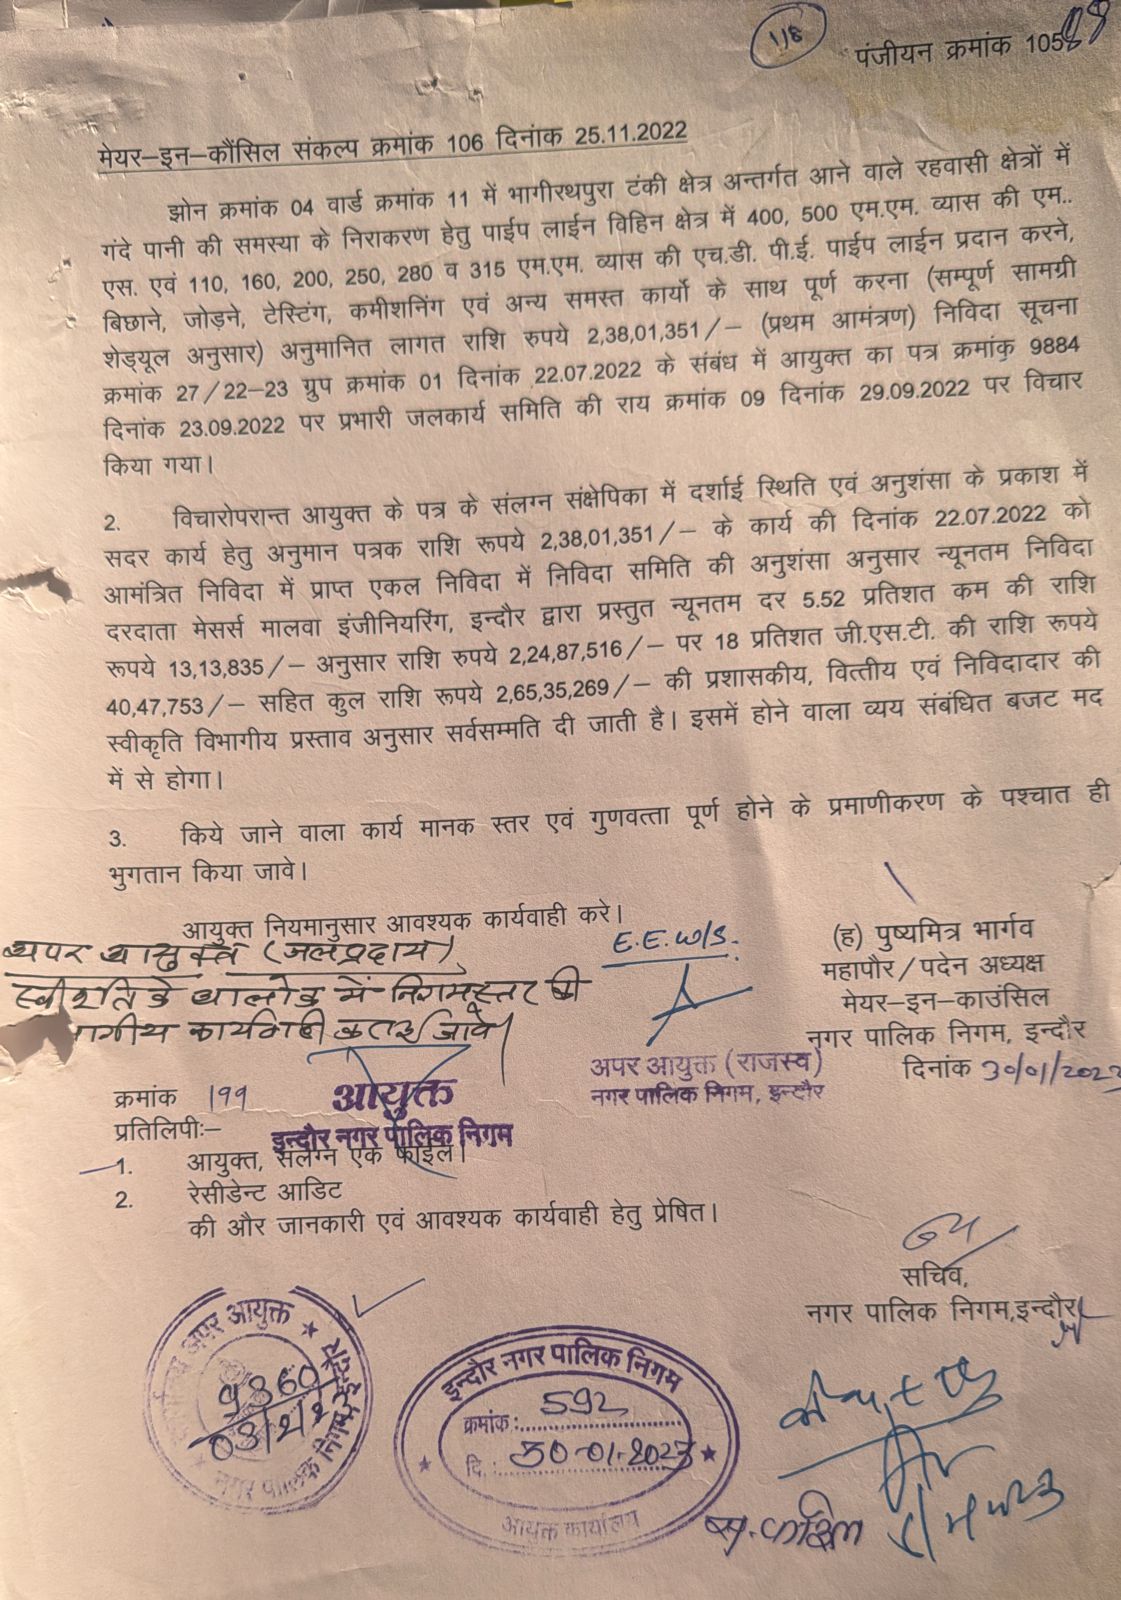 118
पंजीयन क्रमांक 105
मेयर–इन–कौंसिल संकल्प क्रमांक 106 दिनांक 25.11.2022
झोन क्रमांक 04 वार्ड क्रमांक 11 में भागीरथपुरा टंकी क्षेत्र अन्तर्गत आने वाले रहवासी क्षेत्रों में
गंदे पानी की समस्या के निराकरण हेतु पाईप लाईन विहिन क्षेत्र में 400, 500 एम.एम. व्यास की एम..
एस. एवं 110, 160, 200, 250, 280 व 315 एम.एम. व्यास की एच.डी. पी.ई. पाईप लाईन प्रदान करने,
बिछाने, जोड़ने, टेस्टिंग, कमीशनिंग एवं अन्य समस्त कार्यो के साथ पूर्ण करना (सम्पूर्ण सामग्री
शेड्यूल अनुसार) अनुमानित लागत राशि रुपये 2,38,01,351/– (प्रथम आमंत्रण) निविदा सूचना
क्रमांक 27/22–23 ग्रुप क्रमांक 01 दिनांक 22.07.2022 के संबंध में आयुक्त का पत्र क्रमांक 9884
दिनांक 23.09.2022 पर प्रभारी जलकार्य समिति की राय क्रमांक 09 दिनांक 29.09.2022 पर विचार
किया गया।
2. विचारोपरान्त आयुक्त के पत्र के संलग्न संक्षेपिका में दर्शाई स्थिति एवं अनुशंसा के प्रकाश में
सदर कार्य हेतु अनुमान पत्रक राशि रूपये 2,38,01,351/– के कार्य की दिनांक 22.07.2022 को
आमंत्रित निविदा में प्राप्त एकल निविदा में निविदा समिति की अनुशंसा अनुसार न्यूनतम निविदा
दरदाता मेसर्स मालवा इंजीनियरिंग, इन्दौर द्वारा प्रस्तुत न्यूनतम दर 5.52 प्रतिशत कम की राशि
रूपये 13,13,835/– अनुसार राशि रुपये 2,24,87,516/– पर 18 प्रतिशत जी.एस.टी. की राशि रूपये
40,47,753/– सहित कुल राशि रूपये 2,65,35,269/– की प्रशासकीय, वित्तीय एवं निविदादार की
स्वीकृति विभागीय प्रस्ताव अनुसार सर्वसम्मति दी जाती है। इसमें होने वाला व्यय संबंधित बजट मद
में से होगा।
3. किये जाने वाला कार्य मानक स्तर एवं गुणवत्ता पूर्ण होने के प्रमाणीकरण के पश्चात ही
भुगतान किया जावे।
आयुक्त नियमानुसार आवश्यक कार्यवाही करे।
अपर आयुक्त (जलप्रदाय)
स्वीकृति के आलोक में निगमस्तर की
कार्यवाही जावे।
E.E. W/S.
(ह) पुष्यमित्र भार्गव
महापौर/पदेन अध्यक्ष
मेयर–इन–काउंसिल
नगर पालिक निगम, इन्दौर
दिनांक 30/01/2023
अपर आयुक्त (राजस्व)
नगर पालिक निगम, इन्दौर
क्रमांक 199
आयुक्त
इन्दौर नगर पालिक निगम
प्रतिलिपीः–
1. आयुक्त, संलग्न एक फाईल।
2. रेसीडेन्ट आडिट
की और जानकारी एवं आवश्यक कार्यवाही हेतु प्रेषित।
सचिव,
नगर पालिक निगम,इन्दौर
अपर आयुक्त
नगर पालिक निगम इन्दौर
9360
इन्दौर नगर पालिक निगम
क्रमांक: 592
दि.: 30-01-2023
आयुक्त कार्यालय